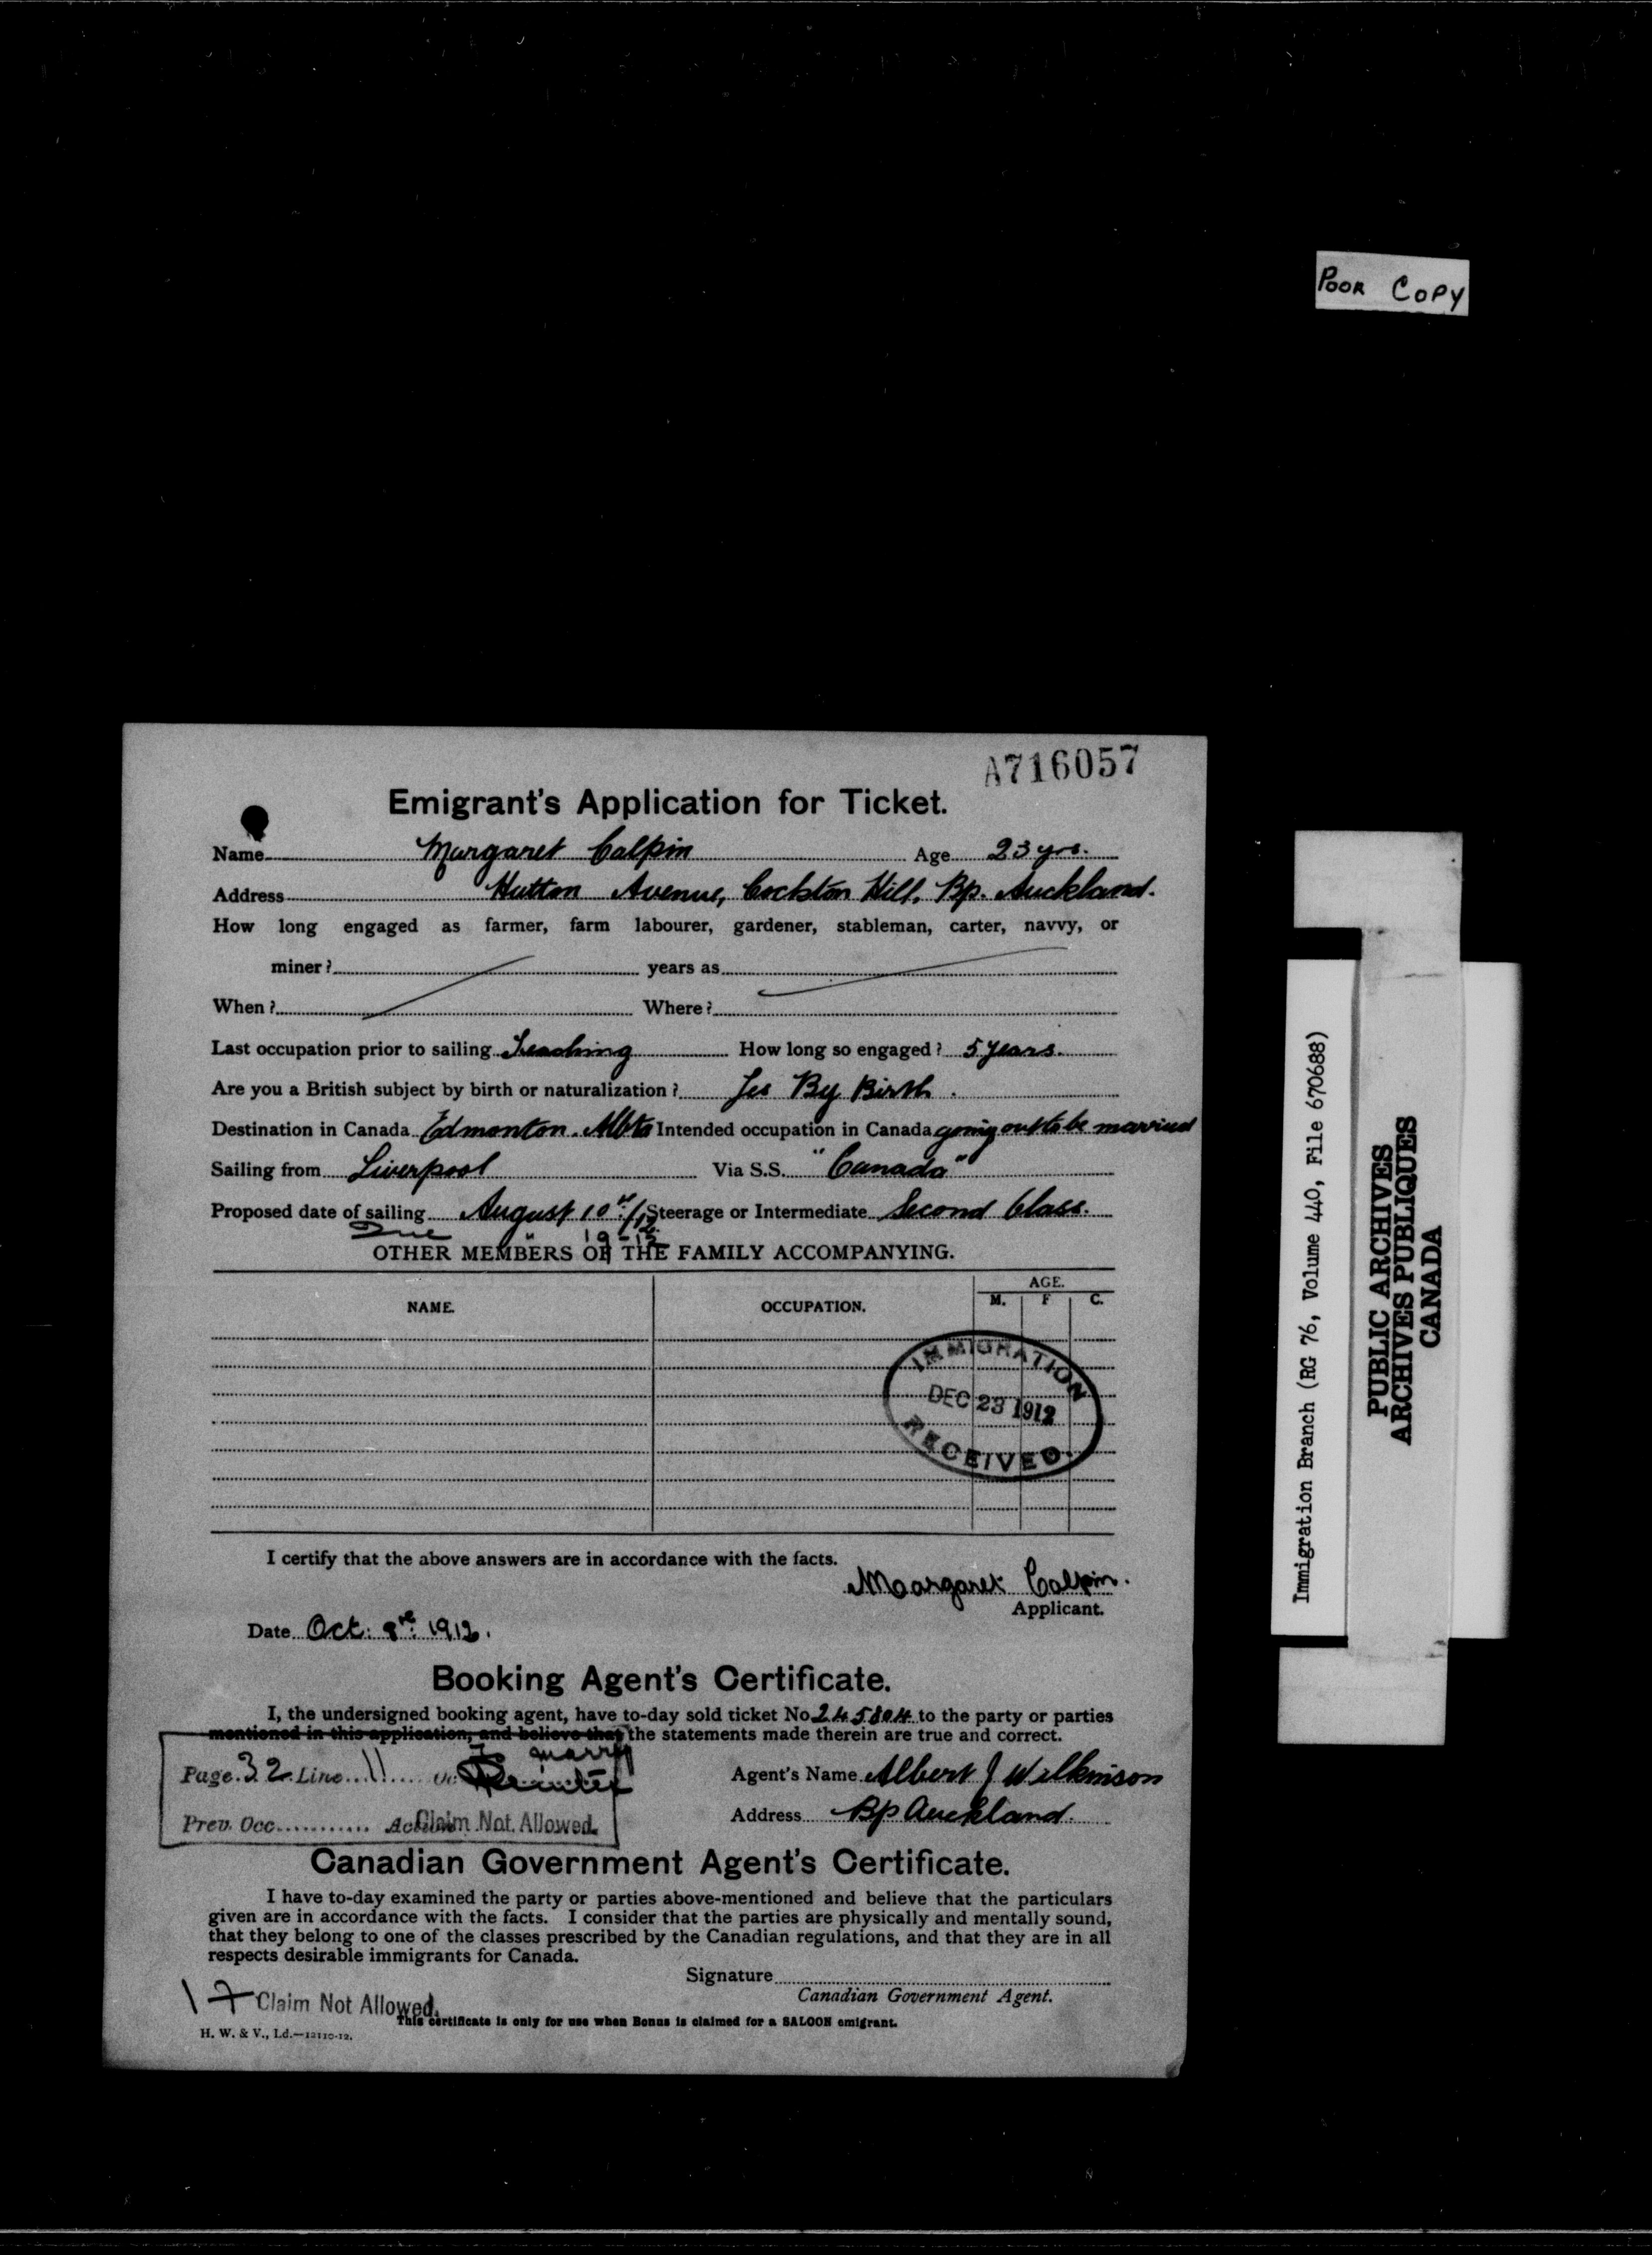 Poor Copy
A716057
Emigrant's Application for Ticket.
Name Margaret Calpin Age 23 yrs.
Address Hutton Avenue, Cockton Hill, Bp. Auckland.
How long engaged as farmer, farm labourer, gardener, stableman, carter, navvy, or
miner? years as
When? Where?
Last occupation prior to sailing Teaching How long so engaged? 5 years.
Are you a British subject by birth or naturalization? Yes By Birth.
Destination in Canada Edmonton. Albta Intended occupation in Canada going out to be married
Sailing from Liverpool Via S.S. "Canada"
Proposed date of sailing August 10th/12 Steerage or Intermediate Second Class.
Due 19-12
OTHER MEMBERS OF THE FAMILY ACCOMPANYING.
NAME. OCCUPATION. AGE.
M. F C.
IMMIGRATION
DEC 23 1912
RECEIVED.
I certify that the above answers are in accordance with the facts.
Maargaret Calpin.
Applicant.
Date Oct: 1912.
Booking Agent's Certificate.
I, the undersigned booking agent, have to-day sold ticket No 245804 to the party or parties
mentioned in this application, and believe that the statements made therein are true and correct.
To marry
Page. 32. Line. 11 Oc
Agent's Name Albert J Wilkinson
Prev. Occ. Action Claim Not Allowed.
Address Bp Auckland.
Canadian Government Agent's Certificate.
I have to-day examined the party or parties above-mentioned and believe that the particulars
given are in accordance with the facts. I consider that the parties are physically and mentally sound,
that they belong to one of the classes prescribed by the Canadian regulations, and that they are in all
respects desirable immigrants for Canada.
Signature
Canadian Government Agent.
17 Claim Not Allowed.
This certificate is only for use when Bonus is claimed for a SALOON emigrant.
H. W. & V., Ld.—12110-12.
Immigration Branch (RG 76, Volume 440, File 670688)
PUBLIC ARCHIVES
ARCHIVES PUBLIQUES
CANADA